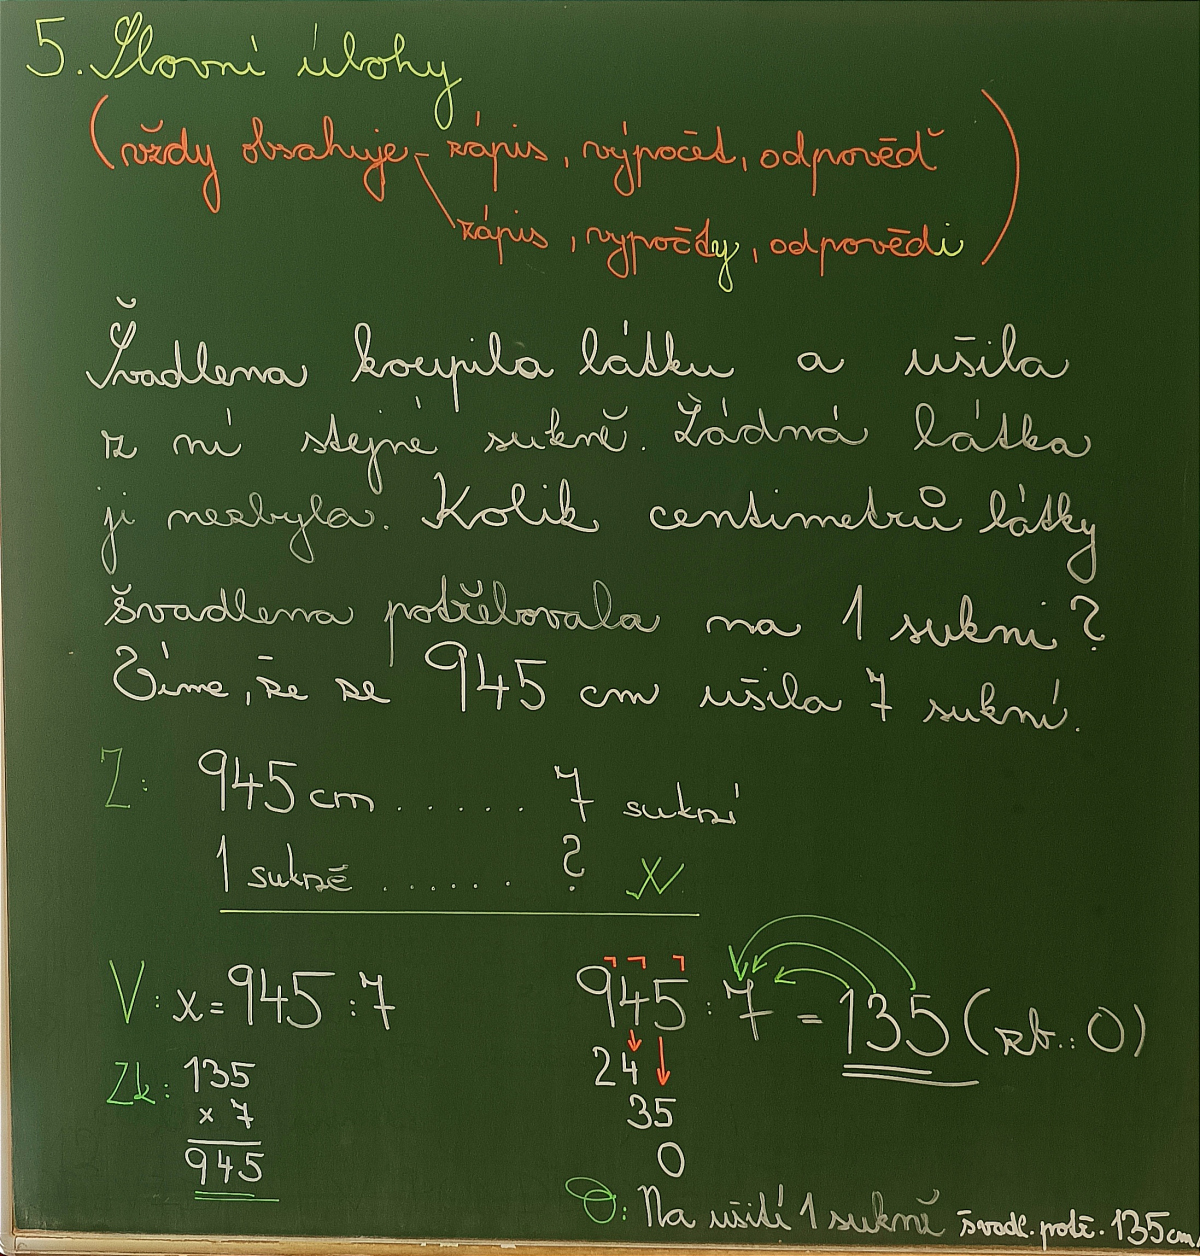 5. Slovní úlohy
(vždy obsahuje - zápis, výpočet, odpověď
zápis, výpočty, odpovědi)
Švadlena koupila látku a ušila
z ní stejné sukně. Žádná látka
jí nezbyla. Kolik centimetrů látky
švadlena potřebovala na 1 sukni?
Víme, že ze 945 cm ušila 7 sukní.
Z: 945 cm ...... 7 sukní
1 sukně ...... ? x
V: x = 945 : 7
945 : 7 = 135 (zb.: 0)
24
35
0
Zk: 135
x 7
945
O: Na ušití 1 sukně švadl. potř. 135 cm